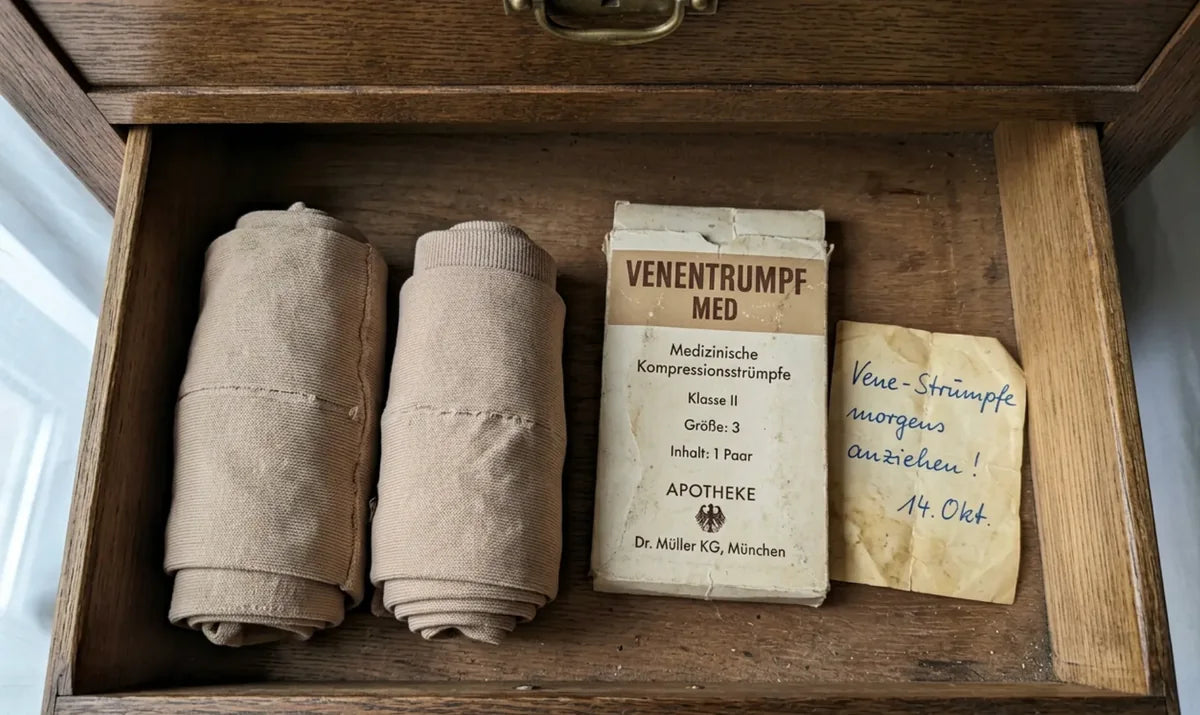 VENENTRUMPF
MED
Medizinische
Kompressionsstrümpfe
Klasse II
Größe: 3
Inhalt: 1 Paar
APOTHEKE
Dr. Müller KG, München
Vene-Strümpfe
morgens
anziehen!
14. Okt.